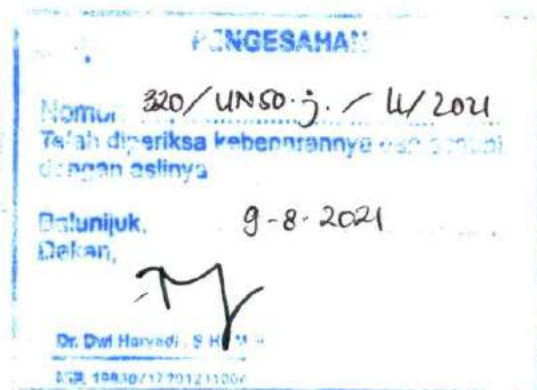 PENGESAHAN
Nomor 320/UN50.j. / LL/2021
Telah diperiksa kebenarannya dan sesuai
dengan aslinya
Balunijuk, 9-8-2021
Dekan,
Dr. Dwi Haryadi, S.H., M.H